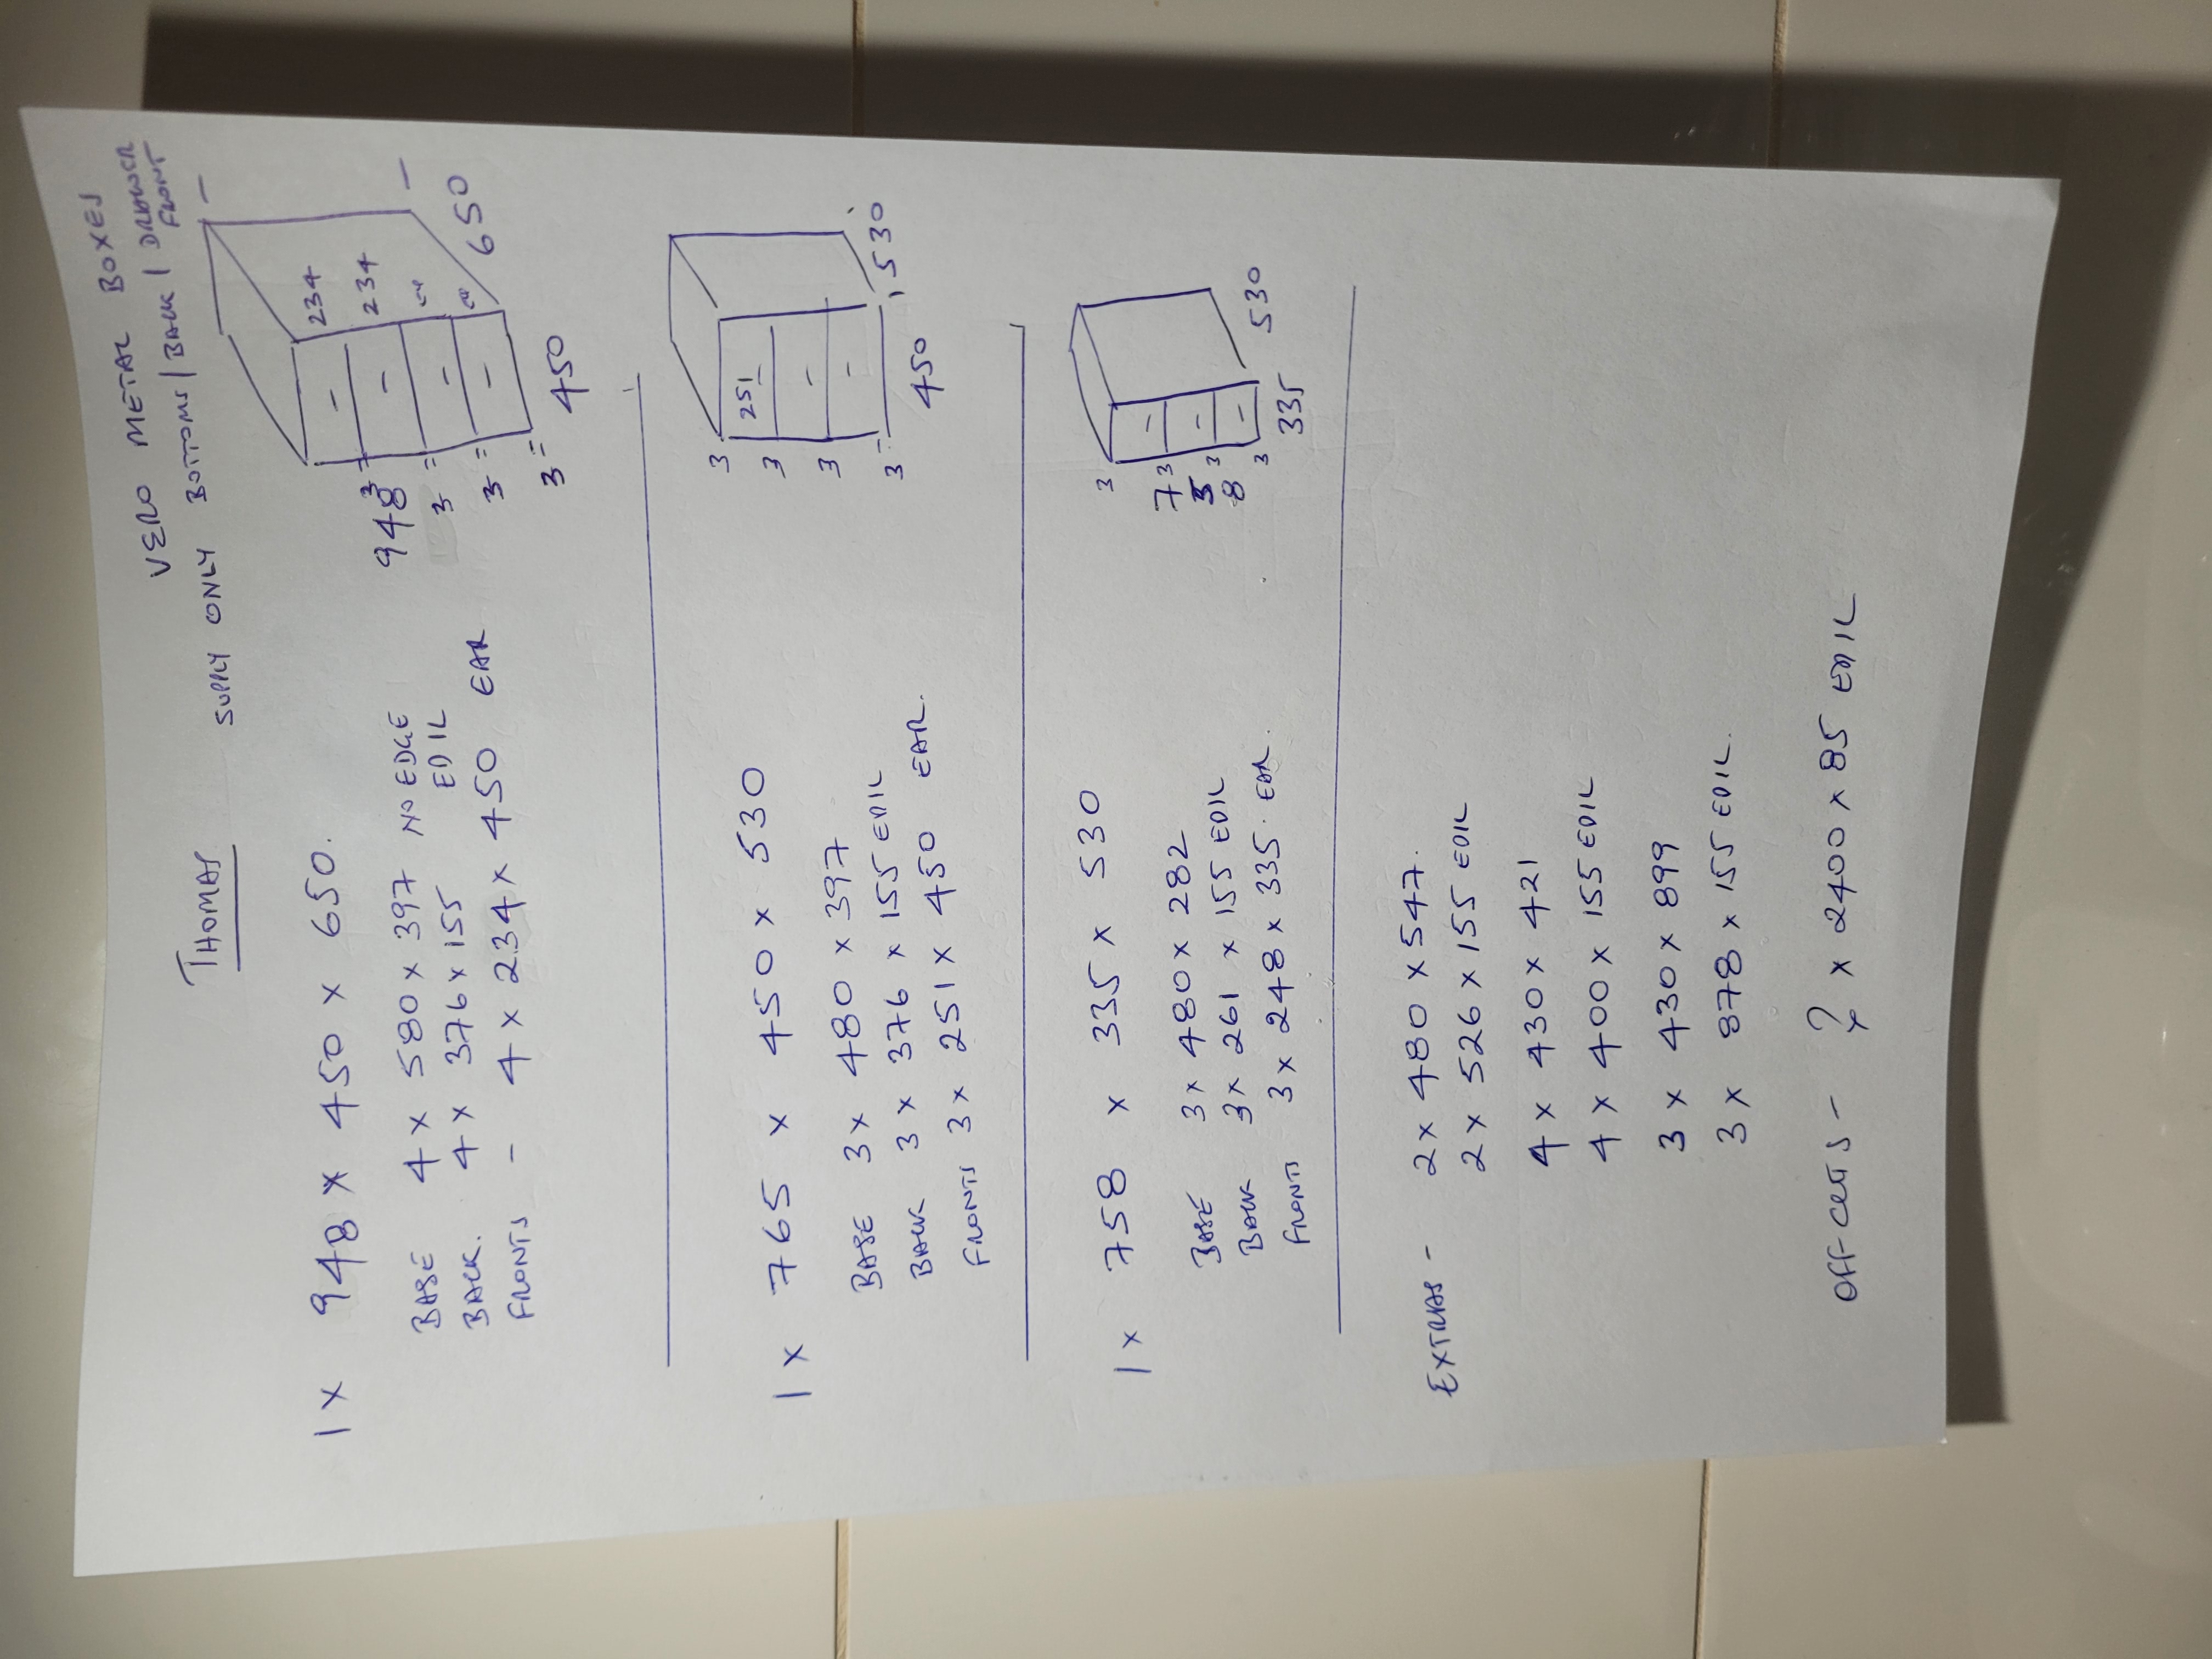 THOMAS
VERO METAL BOXES
SUPPLY ONLY BOTTOMS / BACK / DRAWER FRONT
1x 948 x 450 x 650.
BASE 4 x 580 x 397 NO EDGE
BACK. 4 x 376 x 155 ED1L
FRONTS - 4 x 234 x 450 EAR
234
234
948
3
3
3
3
450
650
1x 765 x 450 x 530
BASE 3x 480 x 397
BACK 3 x 376 x 155 ED1L
FRONTS 3x 251 x 450 EAR.
251
3
3
3
3
450
530
1x 758 x 335 x 530
BASE 3x 480 x 282
BACK 3x 261 x 155 ED1L
FRONTS 3x 248 x 335. EAR.
3
3
3
3
758
335
530
EXTRAS - 2x 480 x 547.
2x 526 x 155 ED1L
4x 430 x 421
4x 400 x 155 ED1L
3x 430 x 899
3x 878 x 155 ED1L.
OFF CUTS - ? x 2400 x 85 ED1L